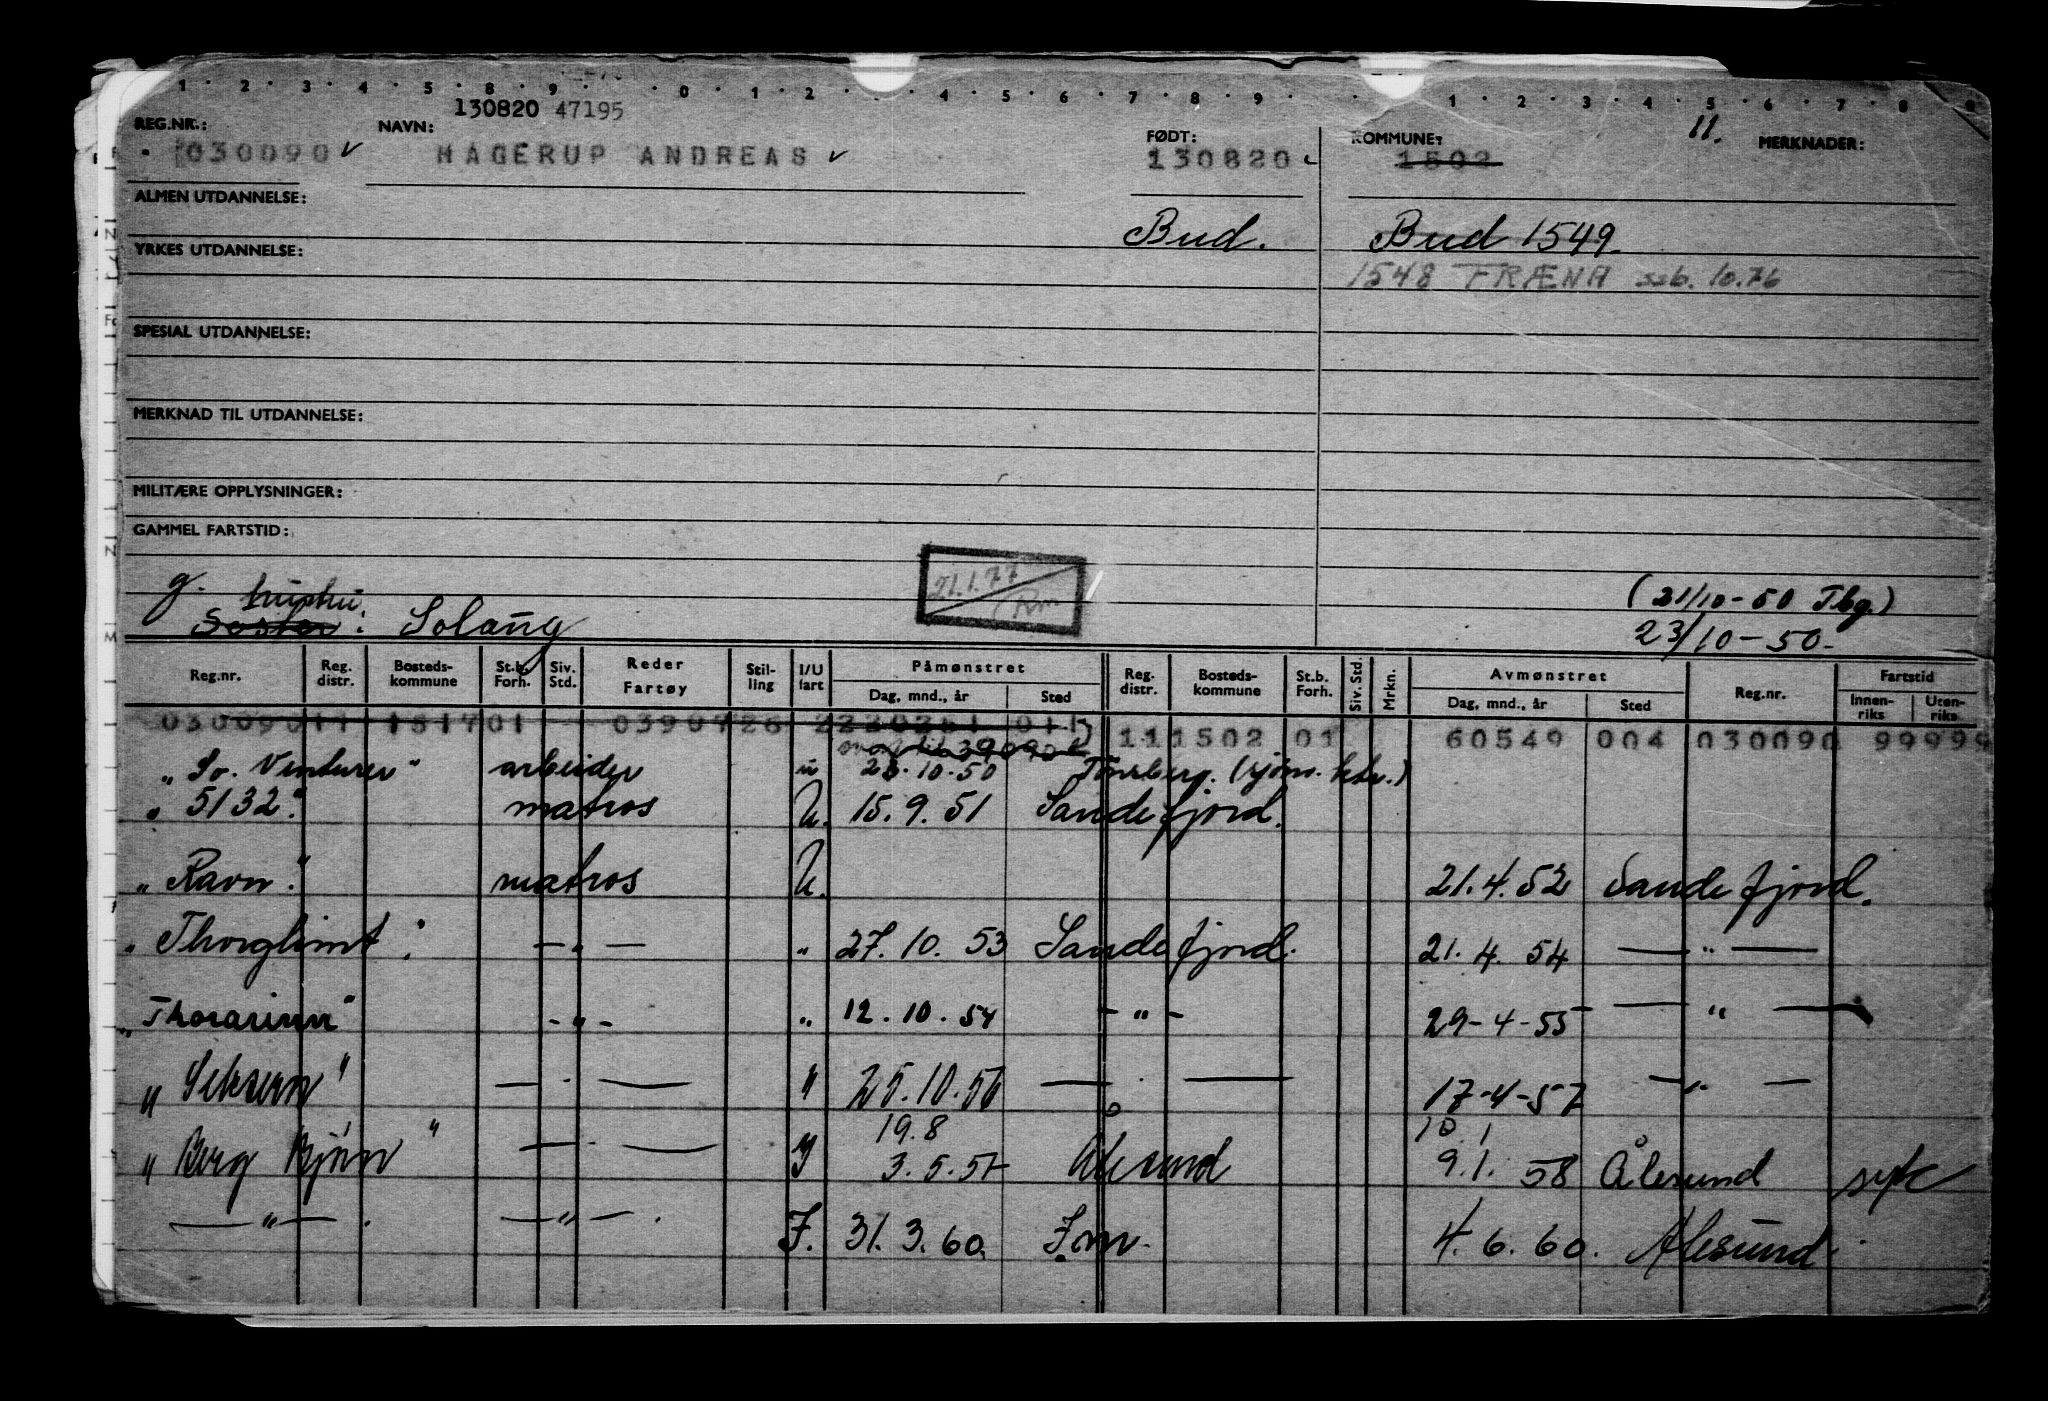 1 · 2 · 3 · 4 · 5 · 8 · 9 · 0 · 1 · 2 · 4 · 5 · 6 · 7 · 8 · 9 · 1 · 2 · 3 · 4 · 5 · 6 · 7 · 8 · 9
130820 47195
11.
REG.NR.: NAVN: FØDT: KOMMUNE: MERKNADER:
030090 HAGERUP ANDREAS 130820 1502
ALMEN UTDANNELSE:
Bud. Bud 1549.
YRKES UTDANNELSE:
1548 FRÆNA ssb. 10.76
SPESIAL UTDANNELSE:
MERKNAD TIL UTDANNELSE:
MILITÆRE OPPLYSNINGER:
GAMMEL FARTSTID:
21.1.77
g. hustru. (21/10-50 Tbg.)
Søster: Solaug 23/10-50.
Reg.nr. Reg. distr. Bosteds-kommune St.b. Forh. Siv. Std. Reder Fartøy Stil-ling I/U fart Påmønstret Dag, mnd., år Sted Reg. distr. Bosteds-kommune St.b. Forh. Siv. Std. Mrkn. Avmønstret Dag, mnd., år Sted Reg.nr. Fartstid Innen-riks Uten-riks
030090 11 1517 01 0390726 2 220251 011
11 1502 01 60549 004 030090 99999
„ So. Venturer" arbeider u 23.10.50 Tønsberg. (sjøm. ktr.)
„ 5132." matros U. 15.9.51 Sandefjord.
„ Ravn." matros U. 21.4.52 Sandefjord.
„ Thorglimt". — „ — „ 27.10.53 Sandefjord. 21.4.54 — „ —
„ Thorarinn" - „ - „ 12.10.54 - „ - 29-4-55 — „ —
„ Seksern" — · — „ 25.10.56 — · — 17-4-57 — „ —
19.8 10.1
„ Berg Bjørn" — — I 3.5.57 Ålesund 9.1.58 Ålesund syk
— „ — . — „ — . I. 31.3.60. I.m. 4.6.60. Ålesund.